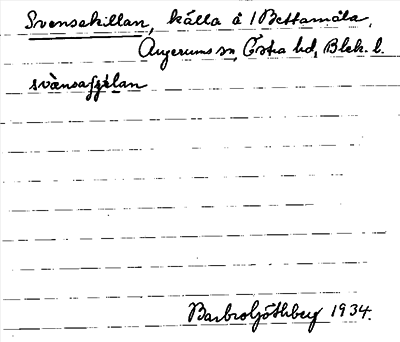 Svensakillan, källa å 1 Bettamåla,
Augerums sn, Östra hd, Blek. l.
svänsaççelan
Barbro Göthberg 1934.